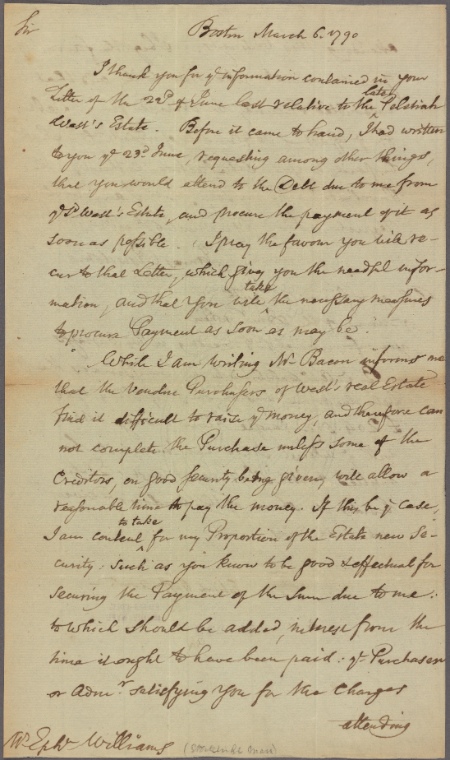 Sir
Boston March 6. 1790
I thank you for ye information contained in your
Letter of the 22d of June last relative to the late Pelatiah
West's Estate. Before it came to hand, I had written
to you ye 23d June, requesting among other things,
that you would attend to the Debt due to me from
ye sd West's Estate, and procure the payment of it as
soon as possible. I pray the favour you will re-
cur to that Letter, which gives you the needful infor-
mation, and that you will take the necessary measures
to procure Payment as soon as may be.
While I am writing Mr Bacon informs me
that the Vendue Purchasers of West's real Estate
find it difficult to raise ye money, and therefore can
not complete the Purchase unless some of the
Creditors, on good security being given, will allow a
reasonable time to pay the money. If this be ye case,
I am content to take for my Proportion of the Estate new Se-
curity: such as you know to be good & effectual for
securing the Payment of the Sum due to me:
to which should be added, interest from the
time it ought to have been paid: ye Purchaser
or Admr. satisfying you for the Charges
attending
Mr Ephm Williams (Stockbridge)